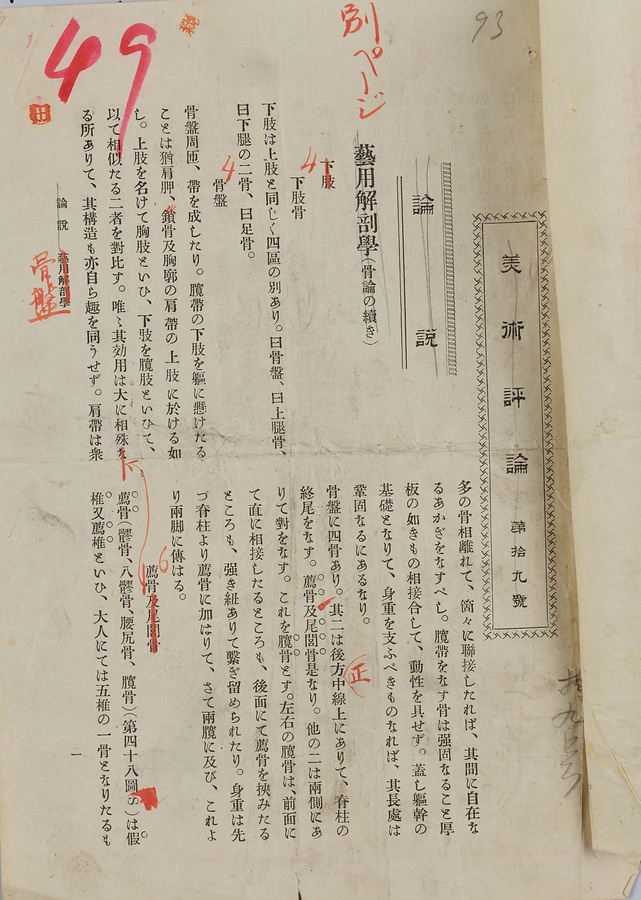 93
49
別ページ
美術評論 第拾九號
論說
藝用解剖學(骨論の續き)
下肢
4
下肢骨
下肢は上肢と同じく四區の別あり。曰骨盤、曰上腿骨、
曰下腿の二骨、曰足骨。
4
骨盤
骨盤周匝、帶を成したり。臗帶の下肢を軀に懸けたる
ことは猶肩胛、鎖骨及胸廓の肩帶の上肢に於ける如
し。上肢を名けて胸肢といひ、下肢を臗肢といひて、
以て相似たる二者を對比す。唯〻其効用は大に相殊な
る所ありて、其構造も亦自ら趣を同うせず。肩帶は衆
多の骨相離れて、箇々に聯接したれば、其間に自在な
るあかぎをなすべし。臗帶をなす骨は强固なること厚
板の如きもの相接合して、動性を具せず。蓋し軀幹の
基礎となりて、身重を支ふべきものなれば、其長處は
鞏固なるにあるなり。
骨盤に四骨あり。其二は後方中線上にありて、脊柱の
正
終尾をなす。薦骨及尾閭骨是なり。他の二は兩側にあ
りて對をなす。これを臗骨とす。左右の臗骨は、前面に
て直に相接したるところも、後面にて薦骨を挾みたる
ところも、强き紐ありて繫ぎ留められたり。身重は先
づ脊柱より薦骨に加はりて、さて兩臗に及び、これよ
り兩脚に傳はる。
6
薦骨及尾閭骨
薦骨(髎骨、八髎骨、腰尻骨、臗骨)(第四十八圖S)は假
椎又薦椎といひ、大人にては五椎の一骨となりたるも
論說 藝用解剖學
骨盤
一